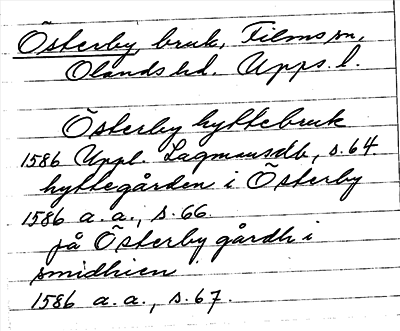 Österby bruk, Films sn,
Olands hd. Upps. l.
Österby hyttebruk
1586 Uppl. Lagmansdb, s. 64
hyttegården i Österby
1586 a. a., s. 66.
på Österby gårdh i
smidhien
1586 a. a., s. 67.